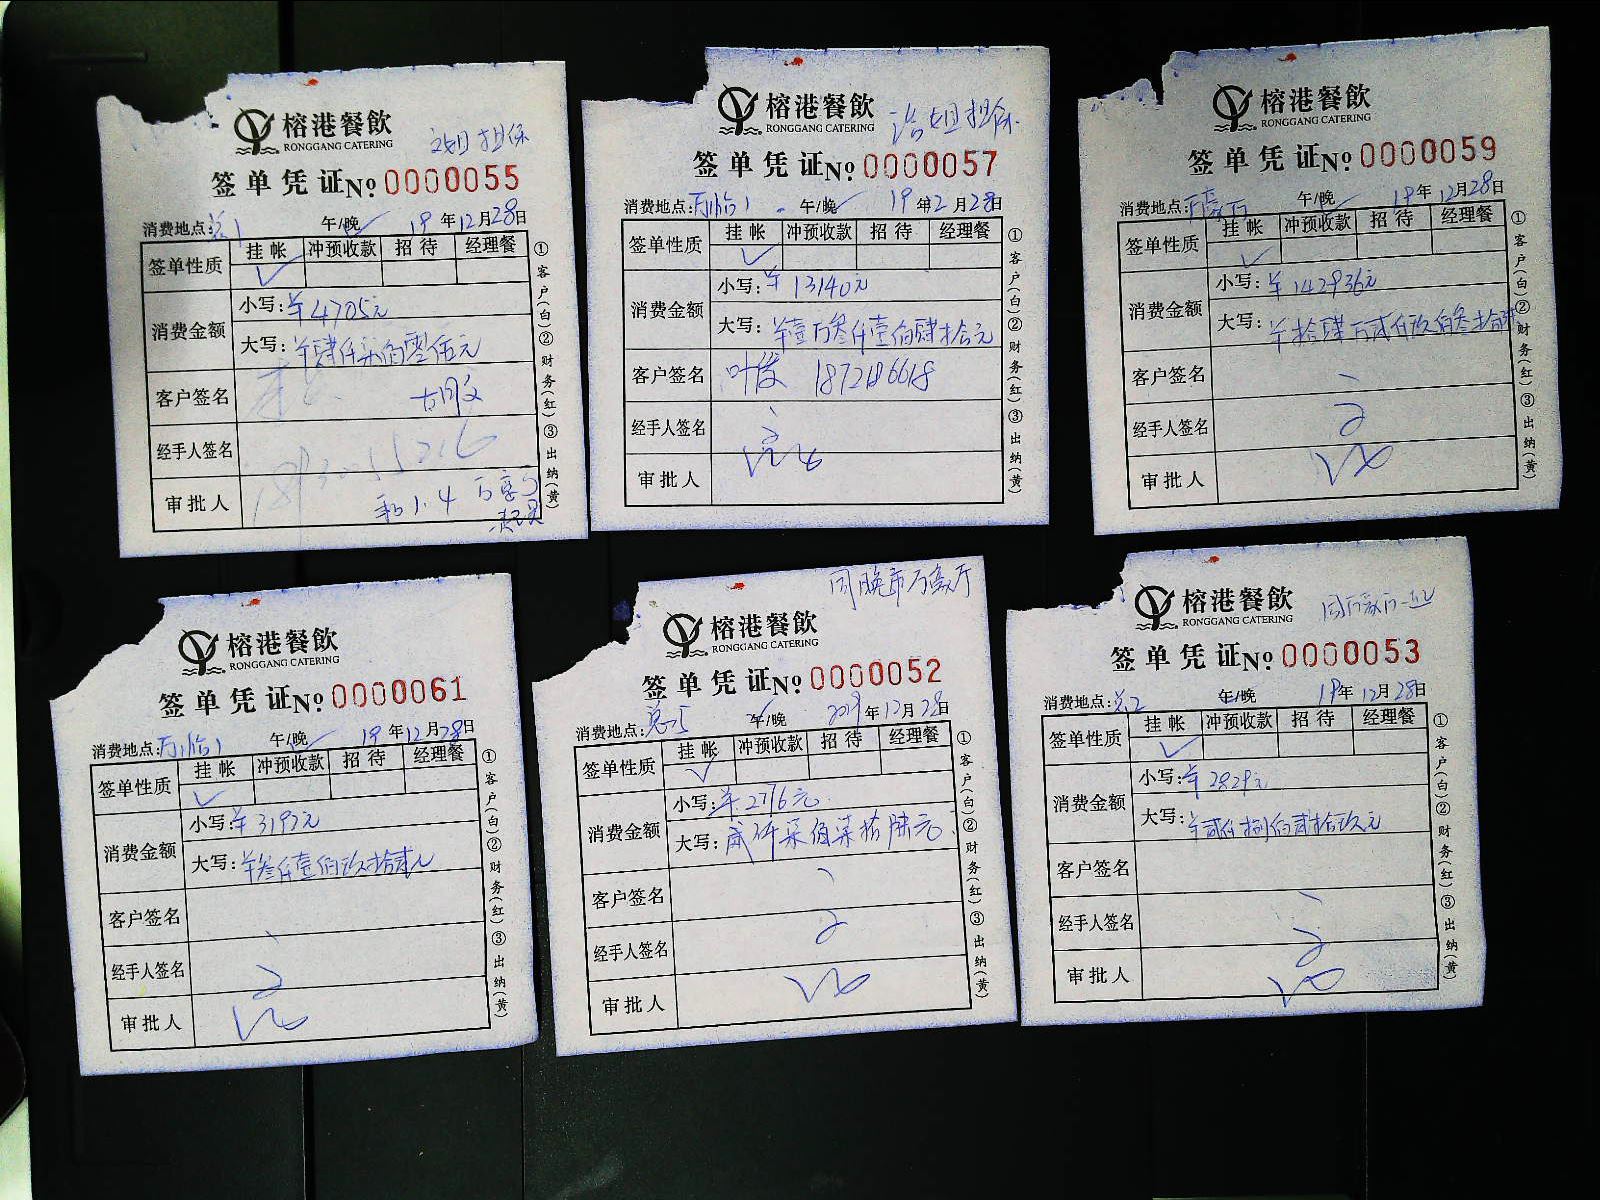 榕港餐飲
RONGGANG CATERING
担保
签单凭证No 0000055
消费地点: 午/晚 19年12月28日
签单性质 挂帐 冲预收款 招待 经理餐
消费金额
小写:¥4705元
大写:¥肆仟柒佰零伍元
客户签名
经手人签名
审批人
和1.4
①客户(白)②财务(红)③出纳(黄)
榕港餐飲
RONGGANG CATERING
姐担保
签单凭证No 0000057
消费地点: 午/晚 19年2月28日
签单性质 挂帐 冲预收款 招待 经理餐
消费金额
小写:¥13140元
大写:¥壹万叁仟壹佰肆拾元
客户签名 叶俊
经手人签名
审批人
①客户(白)②财务(红)③出纳(黄)
榕港餐飲
RONGGANG CATERING
签单凭证No 0000059
消费地点:万豪厅 午/晚 19年12月28日
签单性质 挂帐 冲预收款 招待 经理餐
消费金额
小写:¥142936元
大写:¥拾肆万贰仟玖佰叁拾陆
客户签名
经手人签名
审批人
①客户(白)②财务(红)③出纳(黄)
榕港餐飲
RONGGANG CATERING
签单凭证No 0000061
消费地点: 午/晚 19年12月28日
签单性质 挂帐 冲预收款 招待 经理餐
消费金额
小写:¥3192元
大写:¥叁仟壹佰玖拾贰元
客户签名
经手人签名
审批人
①客户(白)②财务(红)③出纳(黄)
同晚市万豪厅
榕港餐飲
RONGGANG CATERING
签单凭证No 0000052
消费地点: 午/晚 2019年12月28日
签单性质 挂帐 冲预收款 招待 经理餐
消费金额
小写:¥2776元
大写:贰仟柒佰柒拾陆元
客户签名
经手人签名
审批人
①客户(白)②财务(红)③出纳(黄)
榕港餐飲
RONGGANG CATERING
同万豪厅一起
签单凭证No 0000053
消费地点: 午/晚 19年12月28日
签单性质 挂帐 冲预收款 招待 经理餐
消费金额
小写:¥2829元
大写:¥贰仟捌佰贰拾玖元
客户签名
经手人签名
审批人
①客户(白)②财务(红)③出纳(黄)